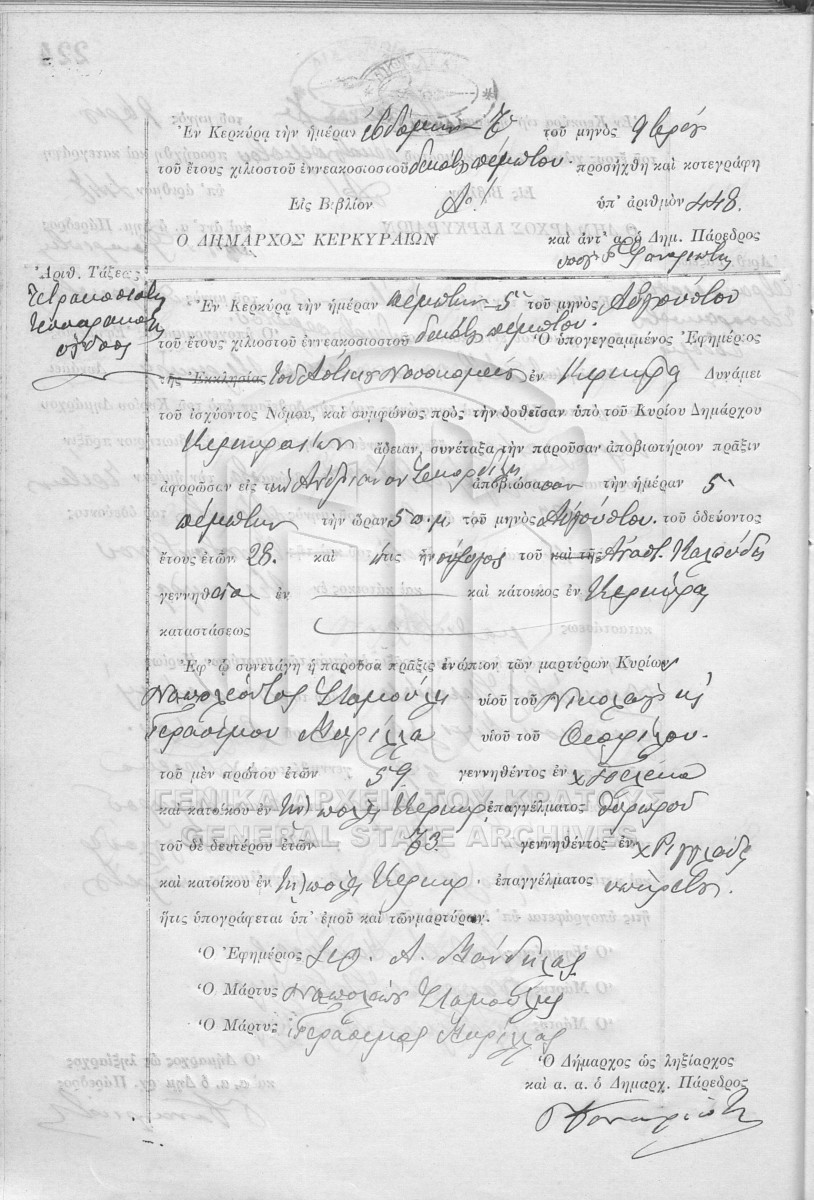 Ἐν Κερκύρᾳ τὴν ἡμέραν ἑβδόμην 7 τοῦ μηνὸς 9βρίου
τοῦ ἔτους χιλιοστοῦ ἐννεακοσιοστοῦ δεκάτου πέμπτου. προσήχθη καὶ κατεγράφη
Εἰς Βιβλίον Αον ὑπ' ἀριθμὸν 448.
Ο ΔΗΜΑΡΧΟΣ ΚΕΡΚΥΡΑΙΩΝ καὶ ἀντ' αὐτοῦ ὁ Δημ. Πάρεδρος
Ἀριθ. Τάξεως
Τετρακοσιοστὸς
Τεσσαρακοστὸς
ὄγδοος
Ἐν Κερκύρᾳ τὴν ἡμέραν πέμπτην 5 τοῦ μηνὸς Αὐγούστου
τοῦ ἔτους χιλιοστοῦ ἐννεακοσιοστοῦ δεκάτου πέμπτου. Ὁ ὑπογεγραμμένος Ἐφημέριος
τῆς Ἐκκλησίας τοῦ Ἀστικοῦ Νοσοκομείου ἐν Κερκύρᾳ Δυνάμει
τοῦ ἰσχύοντος Νόμου, καὶ συμφώνως πρὸς τὴν δοθεῖσαν ὑπὸ τοῦ Κυρίου Δημάρχου
Κερκυραίων ἄδειαν, συνέταξα τὴν παροῦσαν ἀποβιωτήριον πρᾶξιν
ἀφορῶσαν εἰς τὴν ἀποβιώσασαν τὴν ἡμέραν 5
πέμπτην τὴν ὥραν 5 π.μ τοῦ μηνὸς Αὐγούστου. τοῦ ὁδεύοντος
ἔτους ἐτῶν 28. καὶ ἥτις ἦν σύζυγος τοῦ καὶ τῆς Ἀναστ. Καλούδη
γεννηθεῖσα ἐν καὶ κάτοικος ἐν Κερκύρᾳ
καταστάσεως
Ἐφ' ᾧ συνετάγη ἡ παροῦσα πρᾶξις ἐνώπιον τῶν μαρτύρων Κυρίων
Ναπολέοντος Σταμούλη υἱοῦ τοῦ Νικολάου κ
Γερασίμου Κυρίλλα υἱοῦ τοῦ Θεοφίλου.
τοῦ μὲν πρώτου ἐτῶν 59 γεννηθέντος ἐν χ Πέλεκα
καὶ κατοίκου ἐν τῇ πόλει Κερκύρ. ἐπαγγέλματος θυρωροῦ
τοῦ δὲ δευτέρου ἐτῶν 73 γεννηθέντος ἐν χ Ῥιγγλάδες
καὶ κατοίκου ἐν τῇ πόλει Κερκυρ. ἐπαγγέλματος ὑπηρέτου.
ἥτις ὑπογράφεται ὑπ' ἐμοῦ καὶ τῶν μαρτύρων.
Ὁ Ἐφημέριος Α. Μάνδηλας
Ὁ Μάρτυς Ναπολέων Σταμούλης
Ὁ Μάρτυς Γεράσιμος Κυρίλλας
Ὁ Δήμαρχος ὡς ληξίαρχος
καὶ α. α. ὁ Δημαρχ. Πάρεδρος
ΓΕΝΙΚΑ ΑΡΧΕΙΑ ΤΟΥ ΚΡΑΤΟΥΣ
GENERAL STATE ARCHIVES